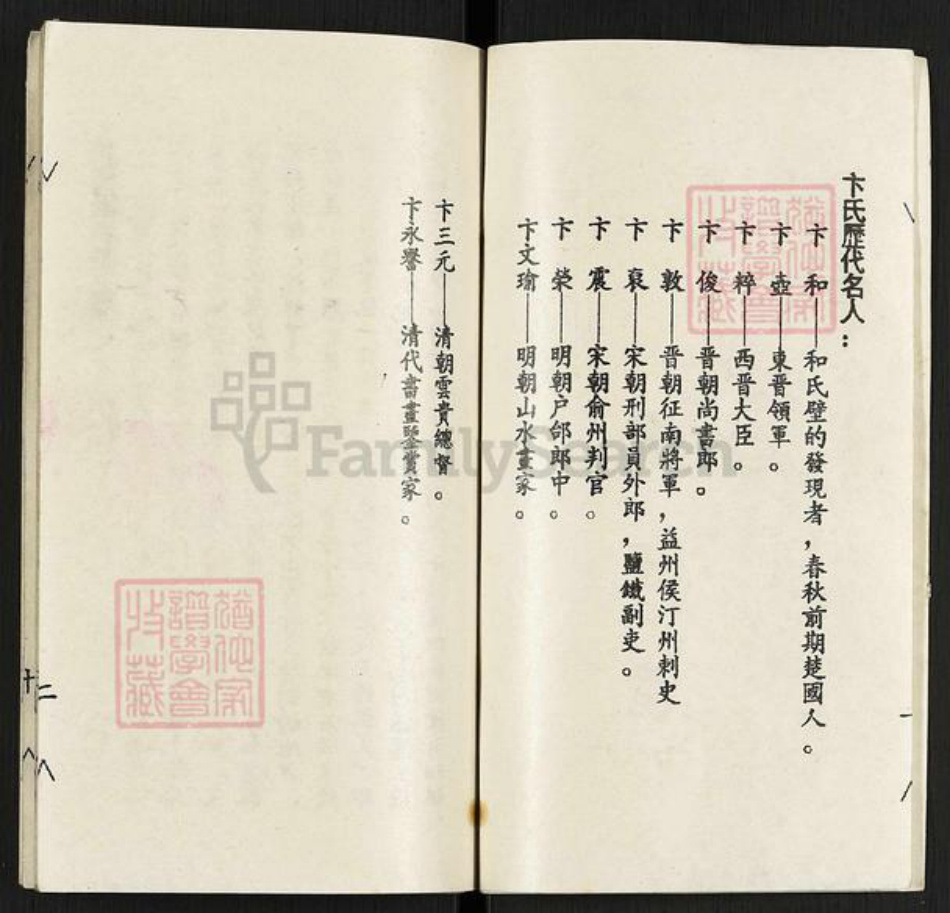 卞氏歷代名人：
卞和——和氏壁的發現者，春秋前期楚國人。
卞壺——東晋領軍。
卞粹——西晋大臣。
卞俊——晋朝尚書郎。
卞敦——晋朝征南將軍，益州侯汀州刺史
卞袞——宋朝刑部員外郎，鹽鐵副吏。
卞震——宋朝俞州判官。
卞榮——明朝户部郎中。
卞文瑜——明朝山水畫家。
卞三元——清朝雲貴總督。
卞永譽——清代書畫鑒賞家。
十二
FamilySearch
譜學會
收藏